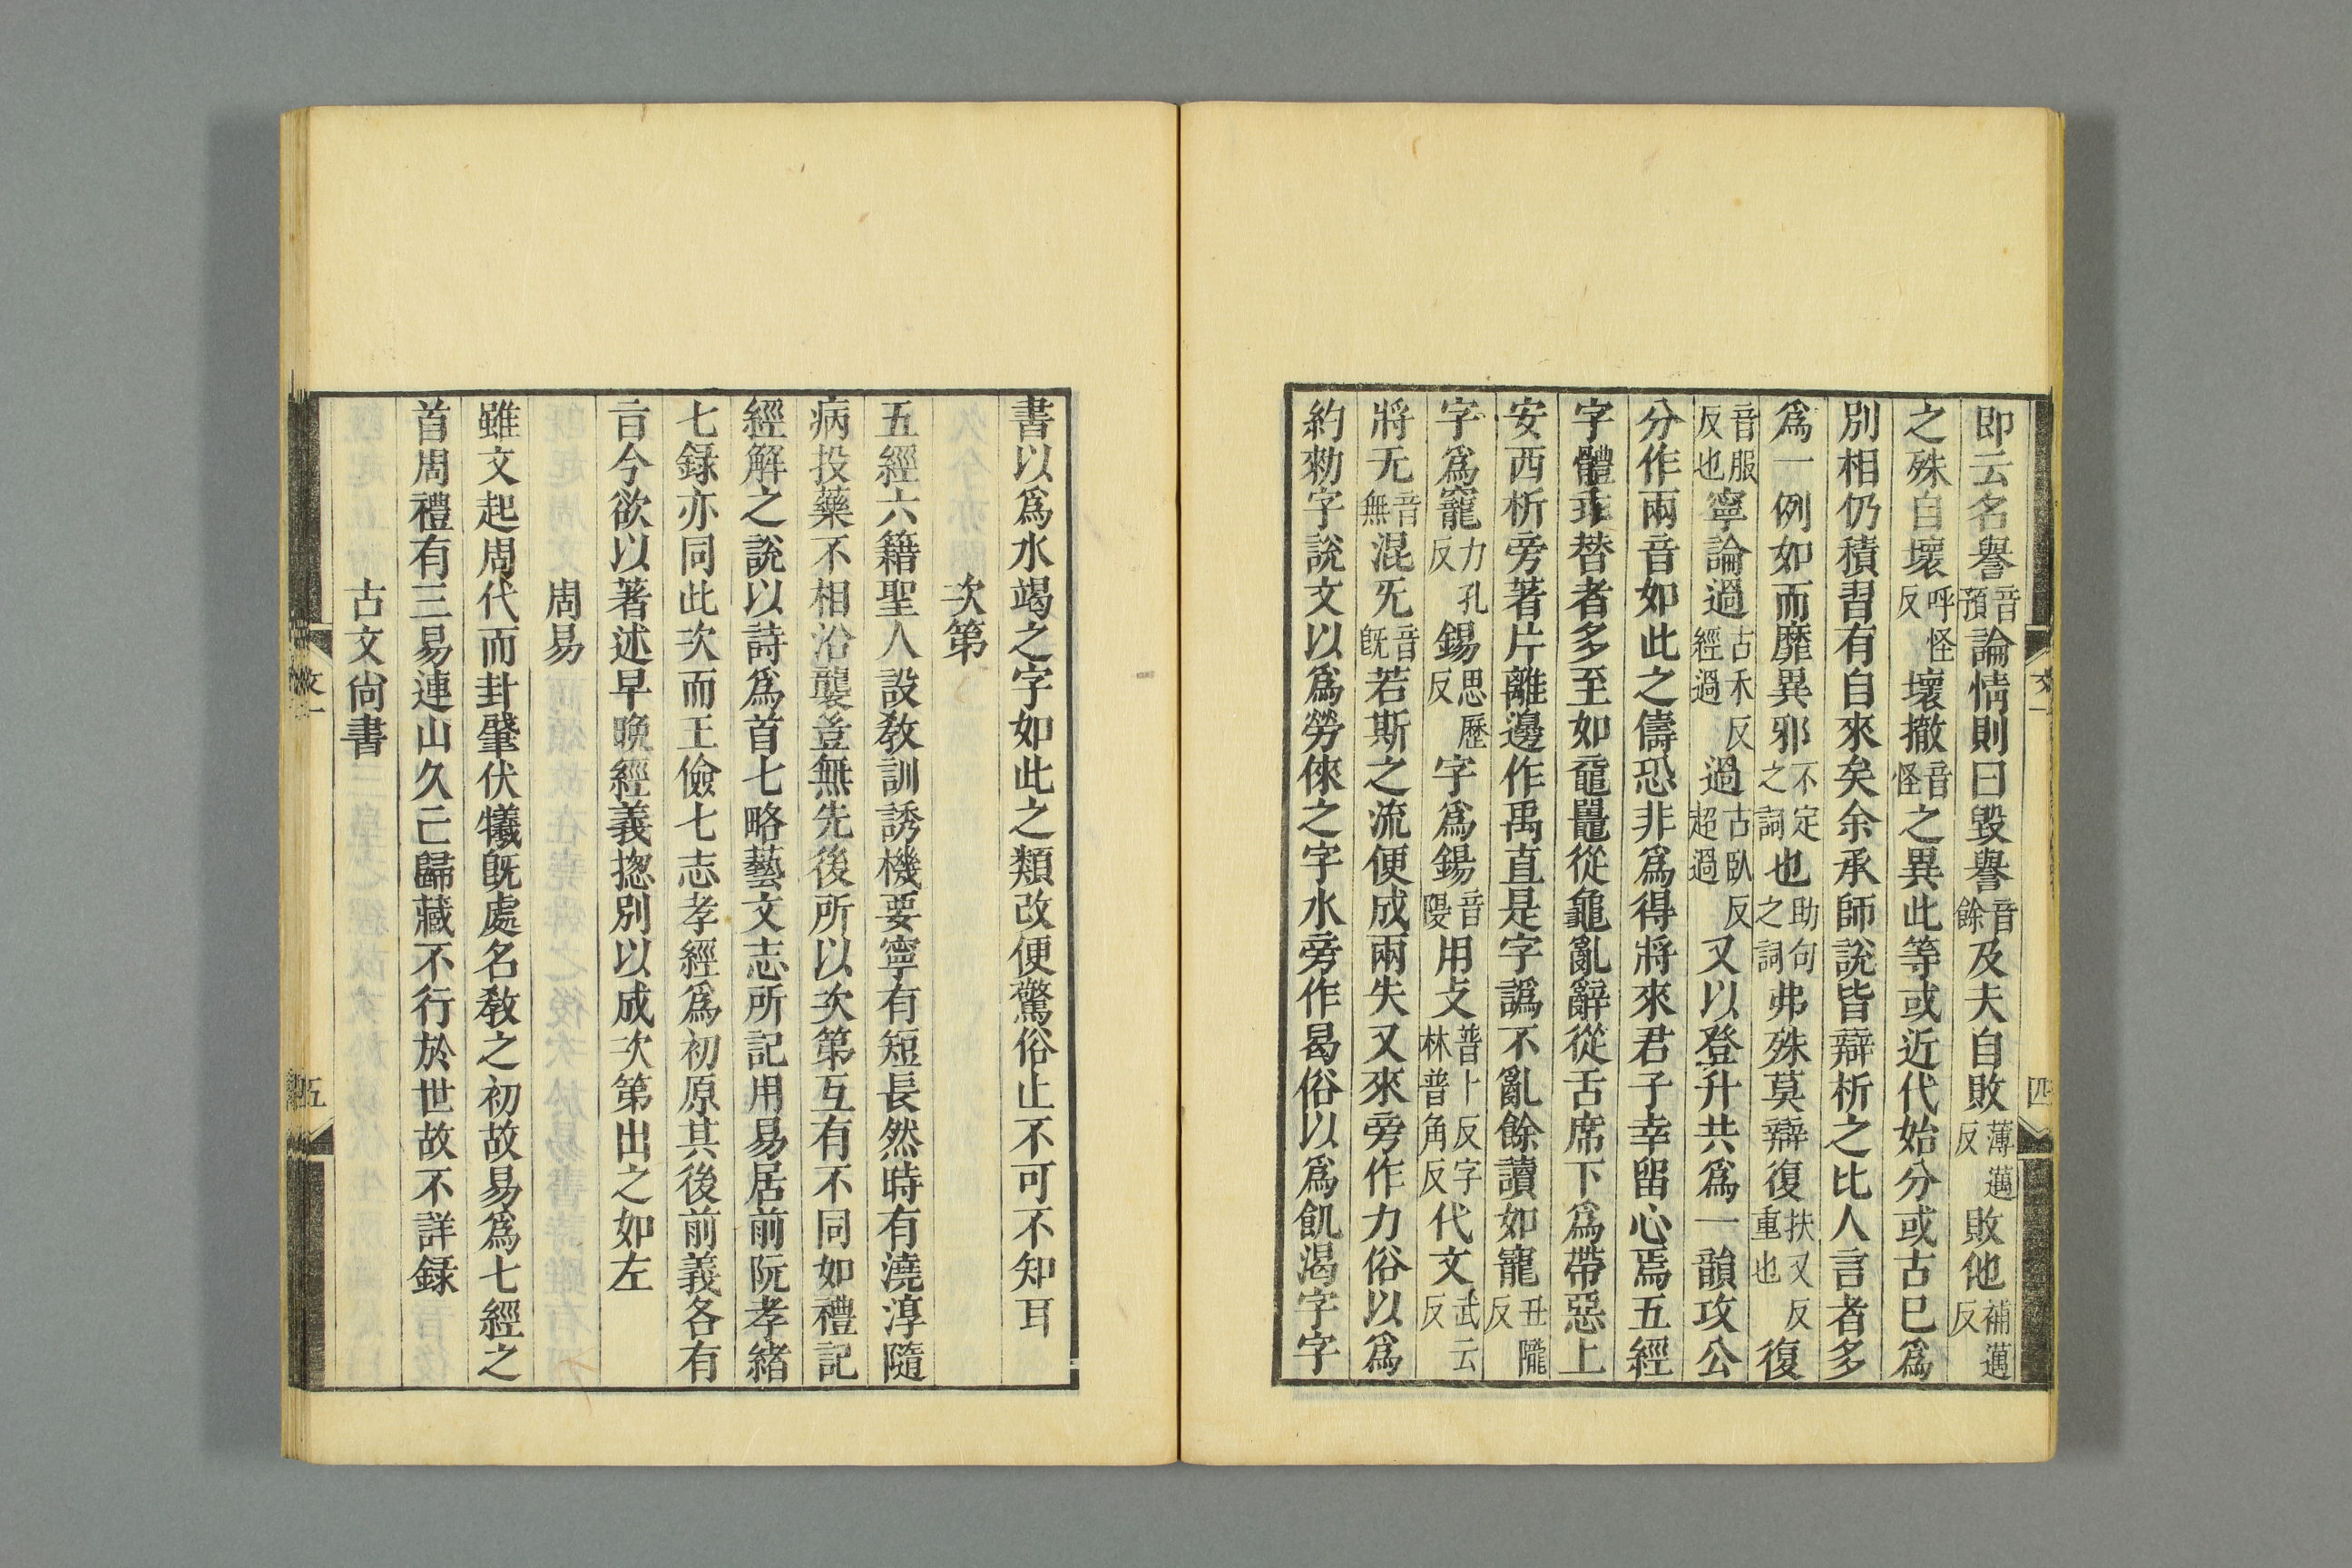 即云名譽音預論情則曰毀譽音餘及夫自敗薄邁反敗他補邁反
之殊自壞呼怪反壞撤音怪之異此等或近代始分或古已爲
別相仍積習有自來矣余承師說皆辯析之比人言者多
爲一例如而靡異邪不定之詞也助句之詞弗殊莫辯復扶又反重也復
音服反也寧論過古禾反經過過古臥反超過又以登升共爲一韻攻公
分作兩音如此之儔恐非爲得將來君子幸留心焉五經
字體乖替者多至如黿鼉從龜亂辭從舌席下爲帶惡上
安西析旁著片離邊作禹直是字譌不亂餘讀如寵丑隴反
字爲竉力孔反錫思歷反字爲鍚音陽用攴普卜反字林普角反代文武云反
將无音無混旡音旣若斯之流便成兩失又來旁作力俗以爲
約勑字說文以爲勞倈之字水旁作曷俗以爲飢渴字字
書以爲水竭之字如此之類改便驚俗止不可不知耳
次第
五經六籍聖人設敎訓誘機要寧有短長然時有澆淳隨
病投藥不相沿襲豈無先後所以次第互有不同如禮記
經解之說以詩爲首七略藝文志所記用易居前阮孝緒
七録亦同此次而王儉七志孝經爲初原其後前義各有
旨今欲以著述早晚經義揔別以成次第出之如左
周易
雖文起周代而卦肇伏犧旣處名敎之初故易爲七經之
首周禮有三易連山久亡歸藏不行於世故不詳録
古文尙書
文一
四
五